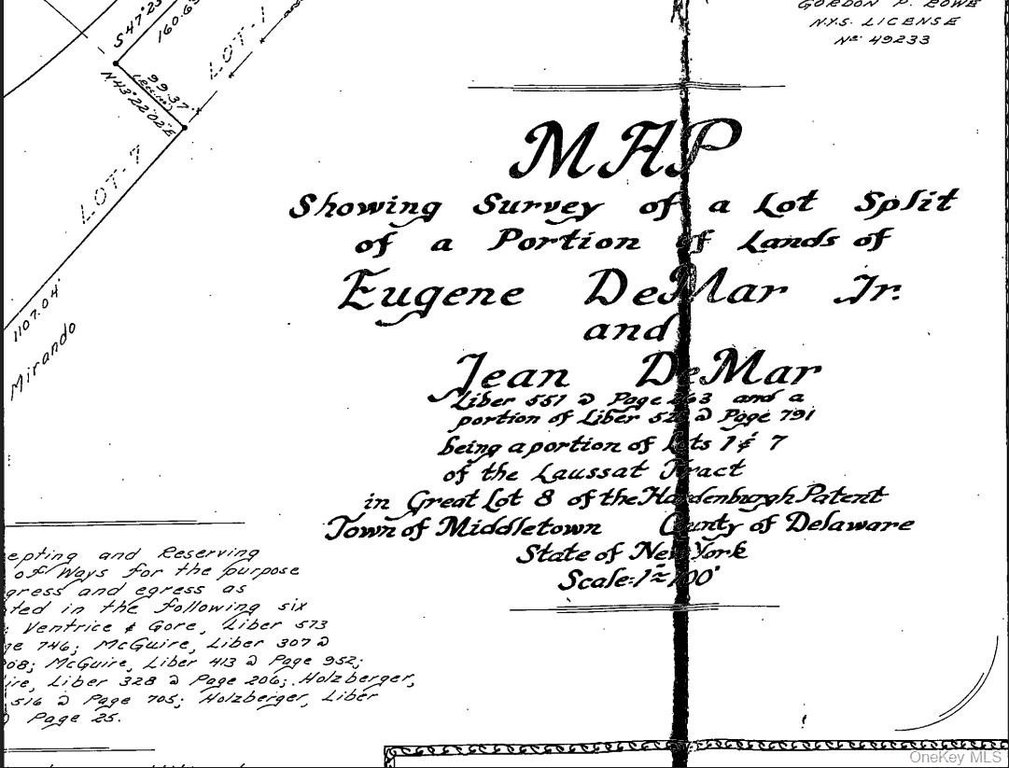 GORDON P. ROWE
N.Y.S. LICENSE
Nº 49233
160.65
LOT-1
99.37'
N43°22'02"E
LOT-7
1107.04'
Mirando
MAP
Showing Survey of a Lot Split
of a Portion of Lands of
Eugene DeMar Jr.
and
Jean DeMar
Liber 551 @ Page and a
portion of Liber @ Page 791
being a portion of Lots 1 & 7
of the Laussat Tract
in Great Lot 8 of the Hardenburgh Patent
Town of Middletown County of Delaware
State of New York
Scale: 1"=100'
epting and Reserving
of Ways for the purpose
gress and egress as
ted in the following six
: Ventrice & Gore, Liber 573
ge 746; McGuire, Liber 307 @
08; McGuire, Liber 413 @ Page 952;
ire, Liber 328 @ Page 206; Holzberger,
516 @ Page 705; Holzberger, Liber
@ Page 25.
OneKey MLS